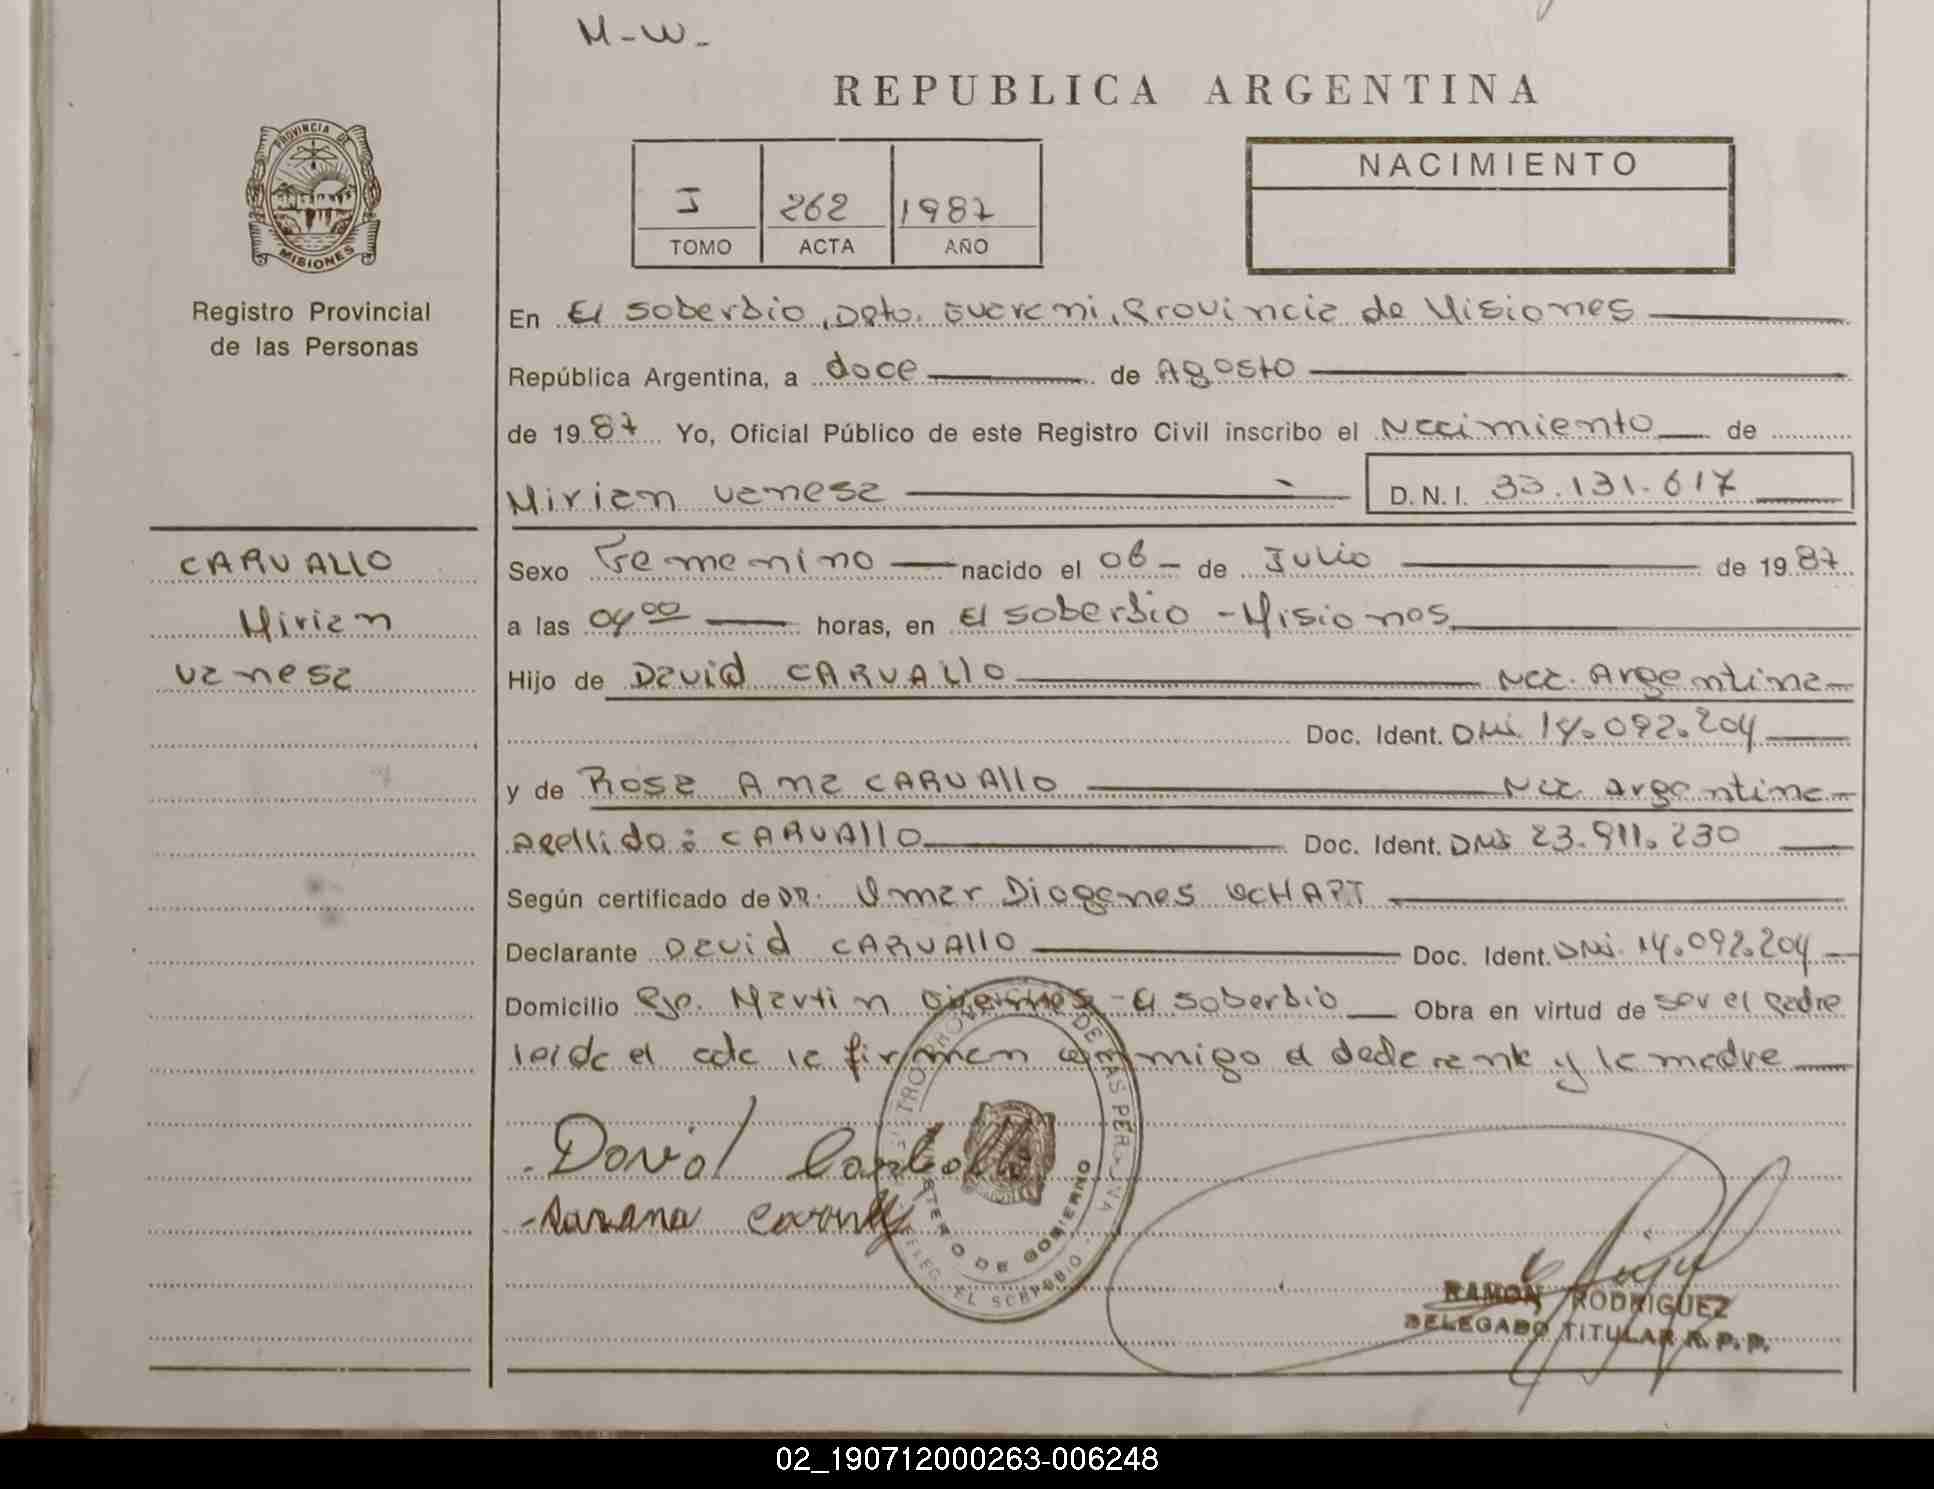 M-W-
REPUBLICA ARGENTINA
PROVINCIA DE
MISIONES
Registro Provincial
de las Personas
I 262 1987
TOMO ACTA AÑO
NACIMIENTO
En El Soberbio, Dpto. Guarani, Provincia de Misiones
República Argentina, a doce de Agosto
de 1987 Yo, Oficial Público de este Registro Civil inscribo el Nacimiento de
Mirian Vanesa D.N.I. 33.131.617
CARVALLO
Mirian
Vanesa
Sexo Femenino nacido el 06 - de Julio de 1987
a las 04 00 horas, en El Soberbio - Misiones
Hijo de David CARVALLO Nac. Argentina
Doc. Ident. DNI 14.092.204
y de Rosa Ana CARVALLO Nac. Argentina
Apellido: CARVALLO Doc. Ident. DNI 23.911.230
Según certificado de DR. Omar Diogenes
Declarante David CARVALLO Doc. Ident. DNI. 14.092.204
Domicilio Pje. Martin - El Soberbio Obra en virtud de ser el padre
leida el acta la firman conmigo el declarante y la madre
David
REGISTRO PROVINCIAL DE LAS PERSONAS
MINISTERIO DE GOBIERNO
DELEG. EL SOBERBIO
RAMON RODRIGUEZ
DELEGADO TITULAR R.P.P.
02_190712000263-006248